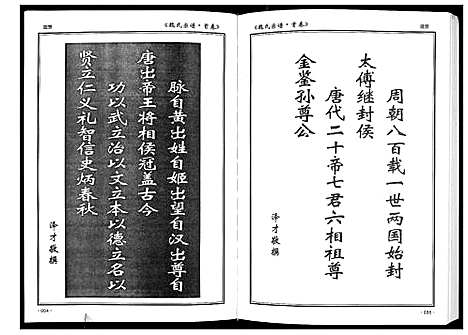 《魏氏宗谱·首卷》
周朝八百载一世两国始封
太傅继封侯
唐代二十帝七君六相祖尊
金鉴孙尊公
泽才敬撰
《魏氏宗谱·首卷》
脉自黄出姓自姬出望自汉出尊自
唐出帝王将相侯冠盖古今
功以武立治以文立本以德立名以
贤立仁义礼智信史炳春秋
泽才敬撰
·004·